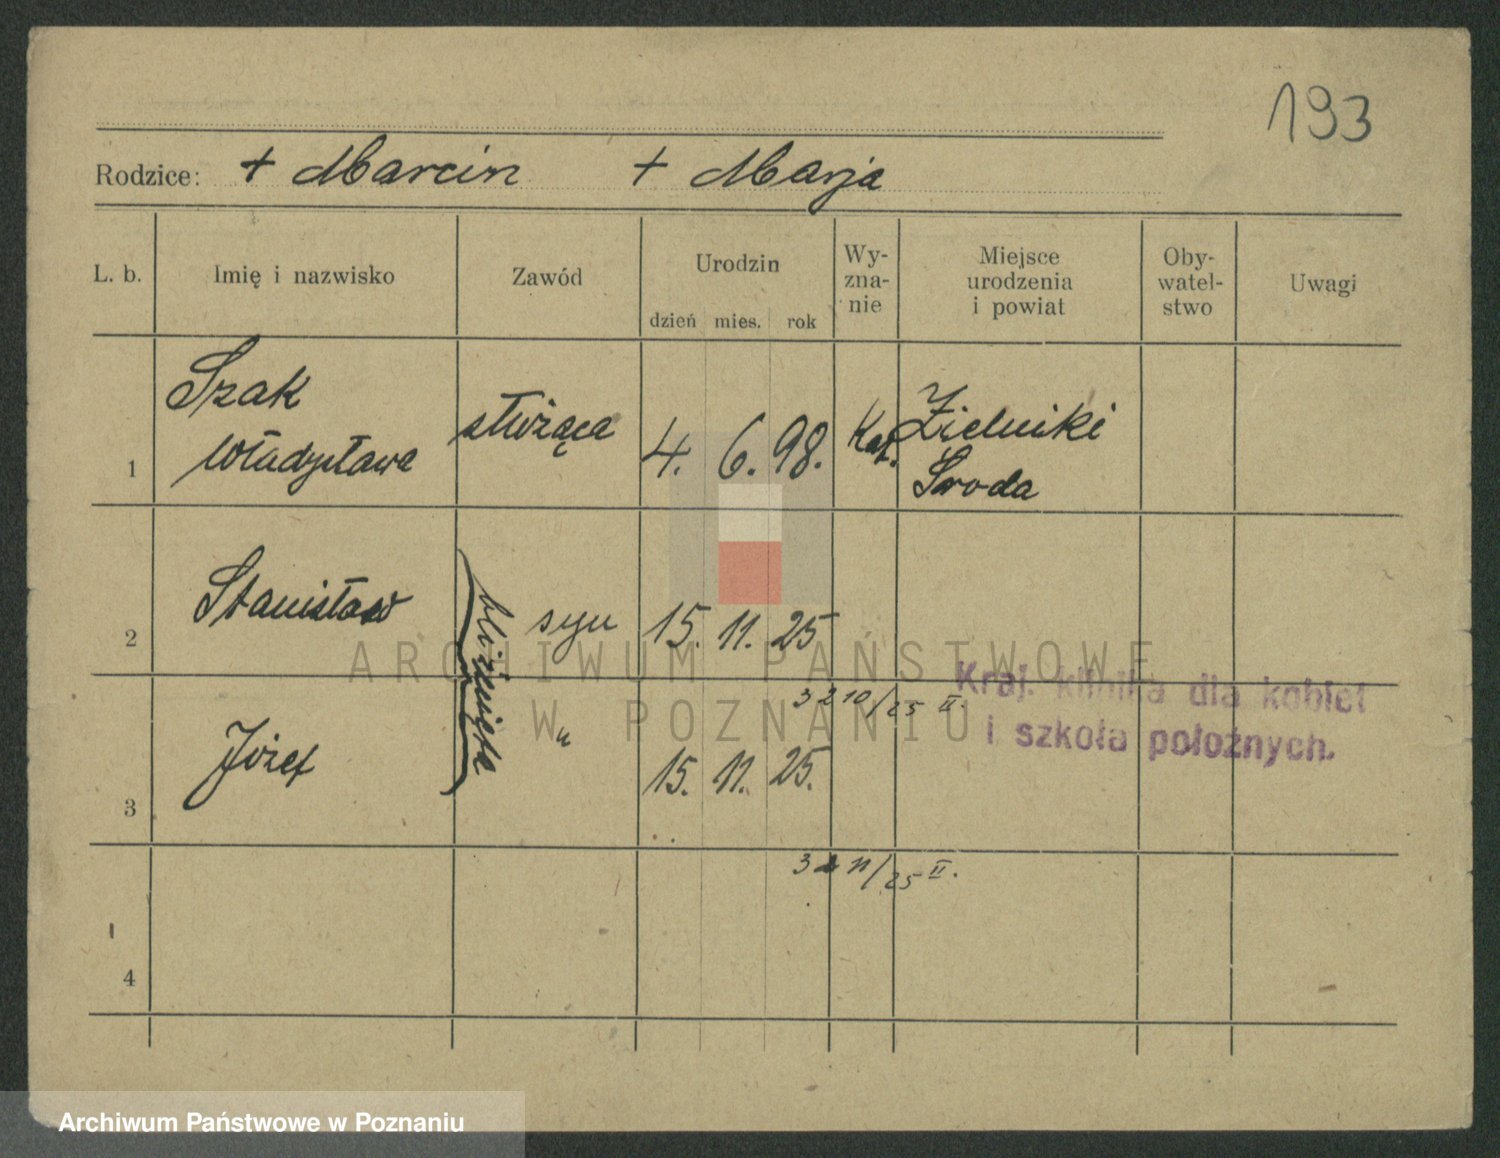 193
Rodzice: + Marcin + Marja
L. b. Imię i nazwisko Zawód Urodzin dzień mies. rok Wy-zna-nie Miejsce urodzenia i powiat Oby-watel-stwo Uwagi
1 Szak Władysława służąca 4. 6. 98. Kat. Zielniki Środa
2 Stanisław bliźnięta syn 15. 11. 25
3210/25 II.
Kraj. klinika dla kobiet
i szkoła położnych.
3 Józef " 15. 11. 25.
3211/25 II.
4
ARCHIWUM PAŃSTWOWE
W POZNANIU
Archiwum Państwowe w Poznaniu